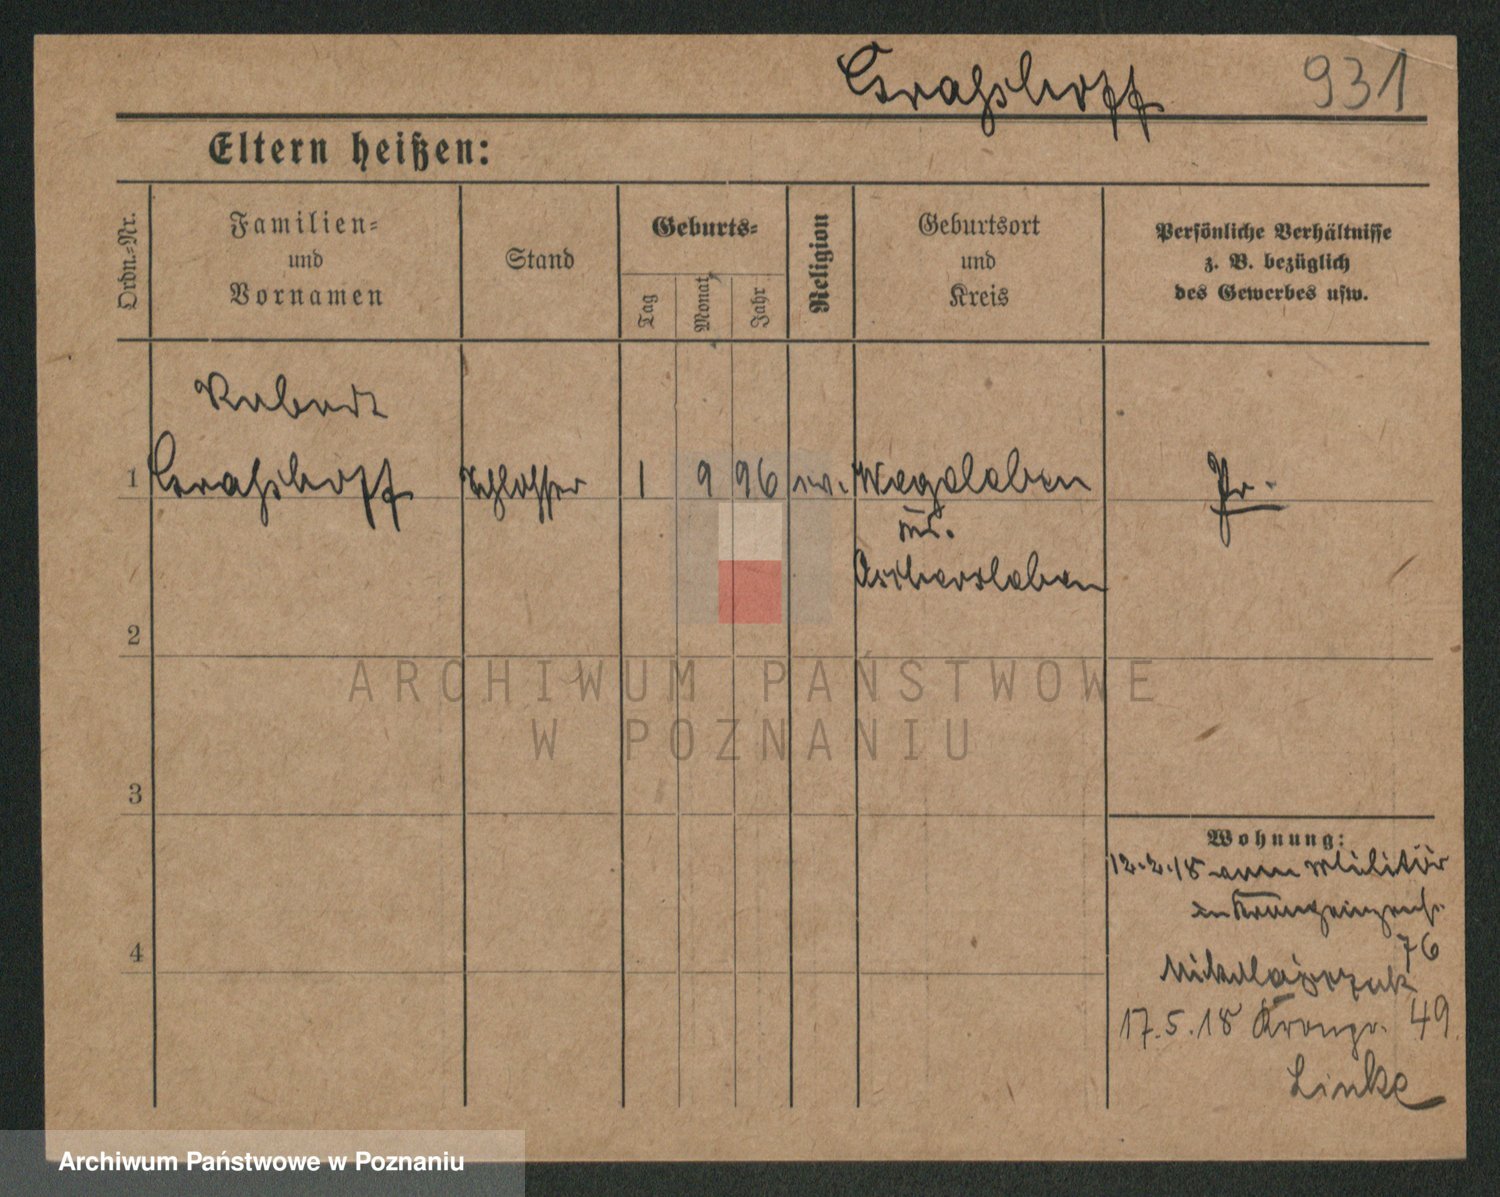 Grashoff 931
Eltern heißen:
Ordn.-Nr.
Familien-
und
Vornamen
Stand
Geburts-
Tag
Monat
Jahr
Religion
Geburtsort
und
Kreis
Persönliche Verhältnisse
z. B. bezüglich
des Gewerbes usw.
Robert
1 Grashoff Schlosser 1 9 96 ev. Wegeleben Pr.
Aschersleben
2
ARCHIWUM PAŃSTWOWE
W POZNANIU
3
Wohnung:
12.2.18 vom Militär
76
4
Mikolajczak
17.5.18 Kronpr. 49
Linke
Archiwum Państwowe w Poznaniu